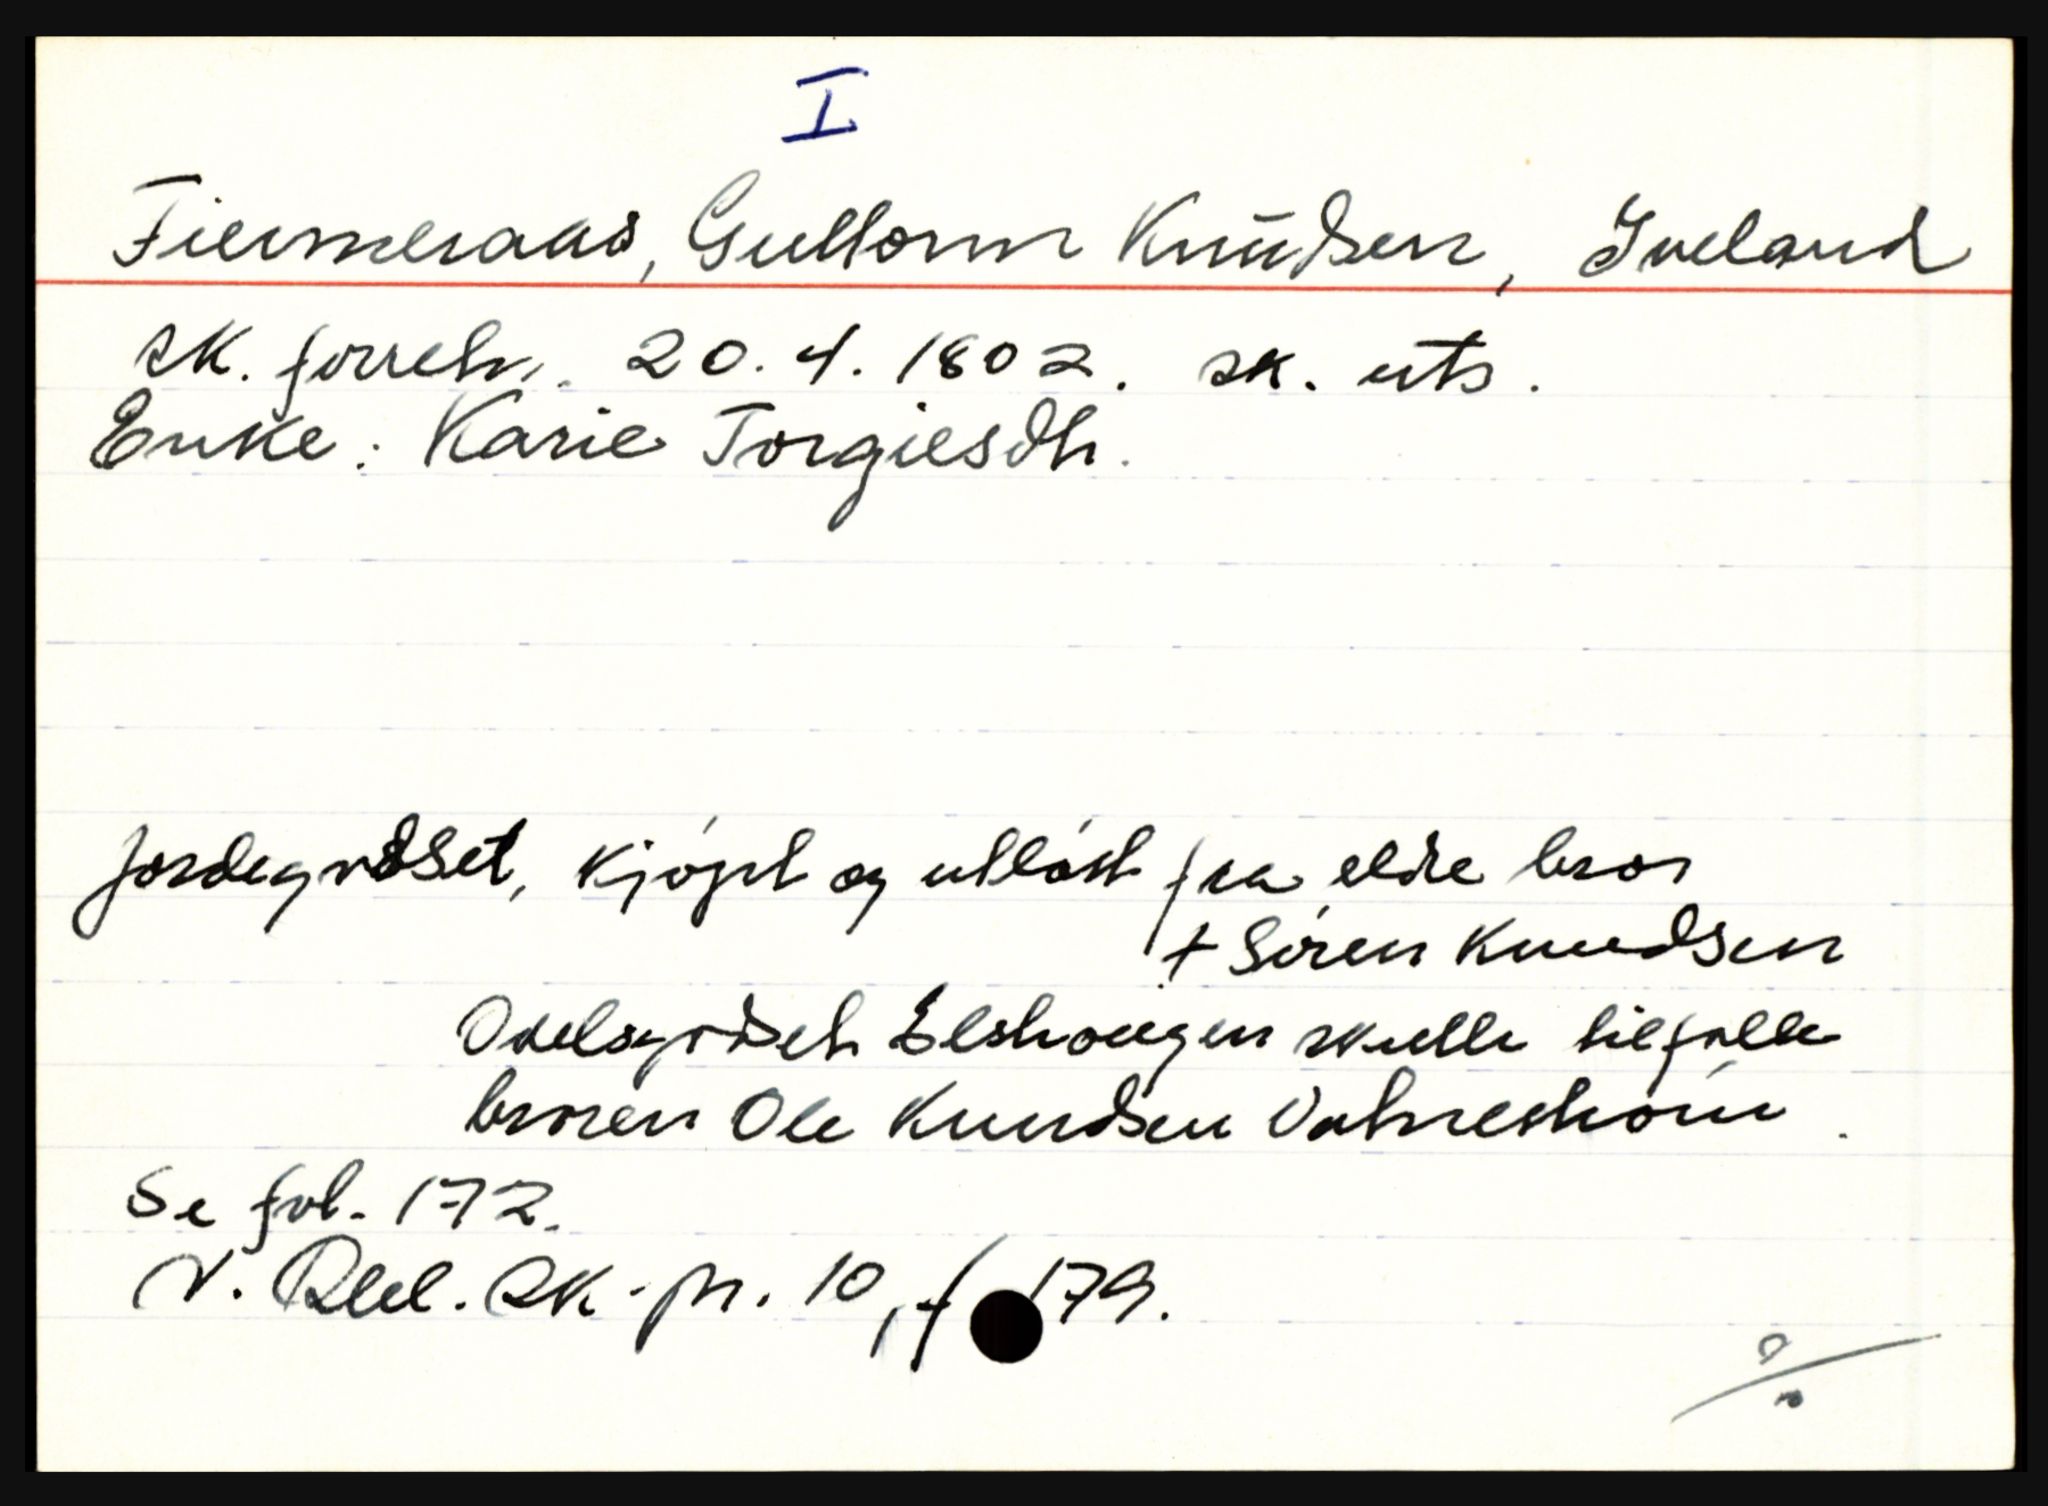 I
Fiermeraas, Guttorm Knudsen, Iveland
sk. forreln. 20.4.1802. sk. uts.
Enke: Karie Torgiesdh.
Jordegodset, kjöpt og utlöst fra eldre bror
+ Sören Knudsen
Odelsgodset Elshougen skulle tilfalle
broren Ole Knudsen Vatnestrøm.
Se fol. 172.
N. Rbl. sk-pr. 10, f 179.